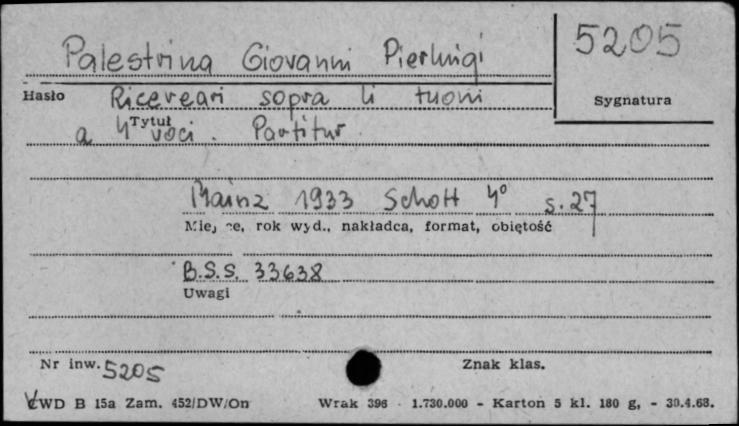 Palestrina Giovanni Pierluigi 5205
Hasło Ricercari sopra li tuoni Sygnatura
Tytuł
a 4 voci. Partitur
Mainz 1933 Schott 4° s. 27
Miejsce, rok wyd., nakładca, format, obiętość
B.S.S. 33638
Uwagi
Nr inw. 5205 Znak klas.
CWD B 15a Zam. 452/DW/On Wrak 396 1.730.000 - Karton 5 kl. 180 g, - 30.4.68.